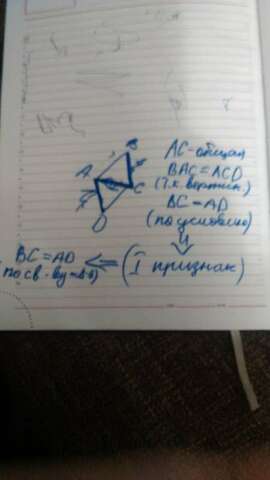 B
A
C
D
AC - общая
BAC = ACD
(т.к. вертик.)
BC = AD
(по условию)
(I признак)
BC = AD
по св-ву = Δ-в)